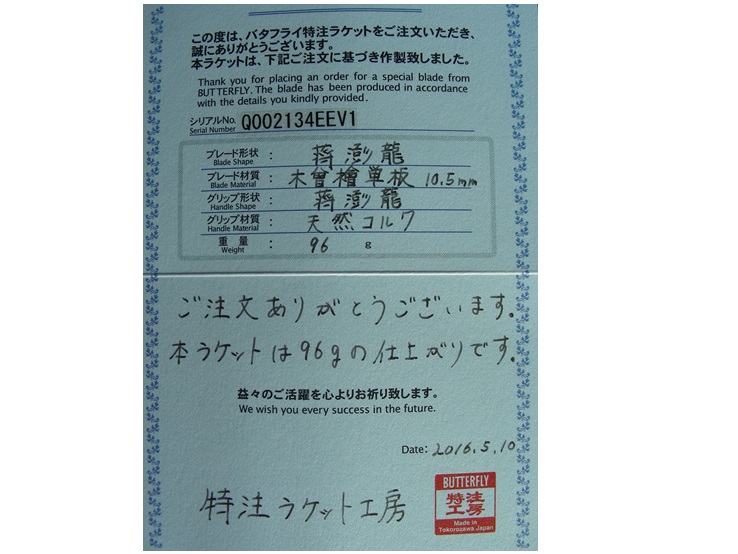 この度は、バタフライ特注ラケットをご注文いただき、
誠にありがとうございます。
本ラケットは、下記ご注文に基づき作製致しました。
Thank you for placing an order for a special blade from
BUTTERFLY. The blade has been produced in accordance
with the details you kindly provided.
シリアルNo. Q002134EEV1
Serial Number
ブレード形状 : 蒋澎龍
Blade Shape
ブレード材質 : 木曾檜単板 10.5mm
Blade Material
グリップ形状 : 蒋澎龍
Handle Shape
グリップ材質 : 天然コルク
Handle Material
重量 : 96 g
Weight
ご注文ありがとうございます。
本ラケットは96gの仕上がりです。
益々のご活躍を心よりお祈り致します。
We wish you every success in the future.
Date: 2016.5.10
特注ラケット工房
BUTTERFLY
特注
工房
Made in
Tokorozawa Japan